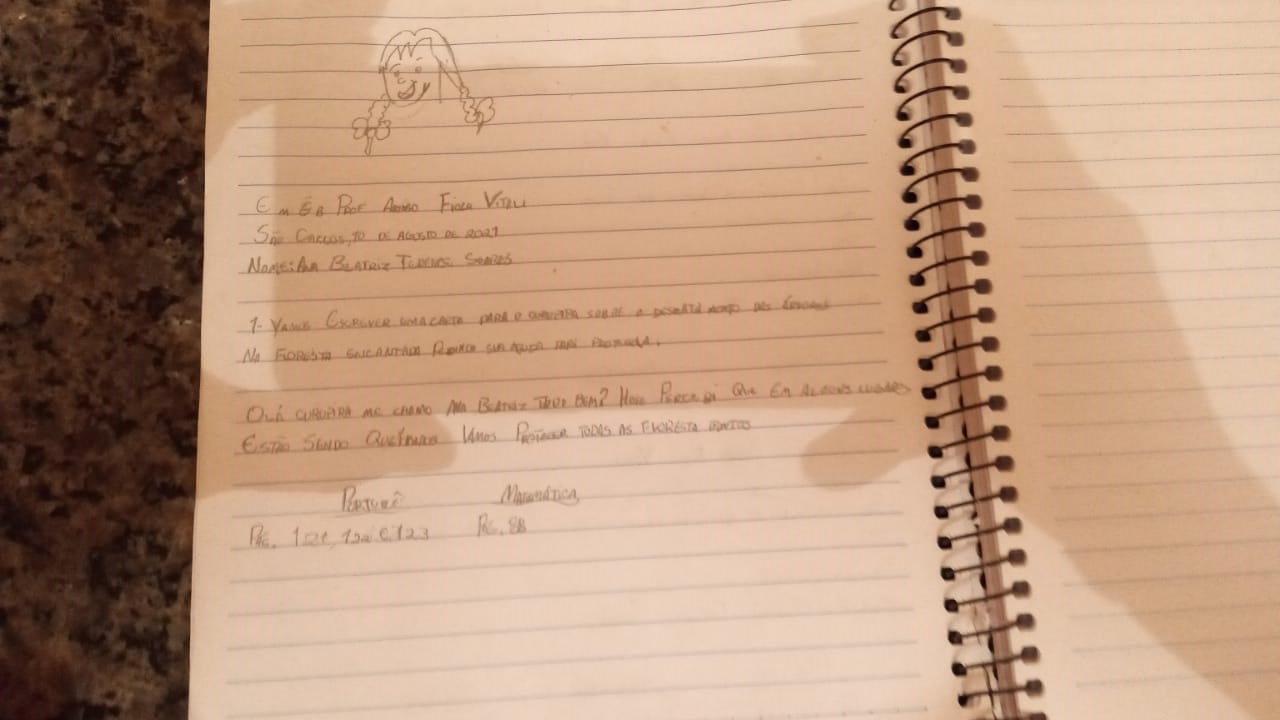 E M E B PROF AFONSO FIOCA VITALI
SÃO CARLOS, 10 DE AGOSTO DE 2021
NOME: ANA BEATRIZ SOARES
1- VAMOS ESCREVER UMA CARTA PARA O CURUPIRA SOBRE O DAS ÁRVORES
NA FLORESTA ENCANTADA SUA AJUDA PARA
OLÁ CURUPIRA ME CHAMO ANA BEATRIZ TUDO BEM? HOJE PERCEBI QUE EM ALGUNS LUGARES
ESTÃO SENDO VAMOS PROTEGER TODAS AS FLORESTA
PORTUGUÊ MATEMÁTICA
PÁG. 121, 122 E 123 PÁG. 88